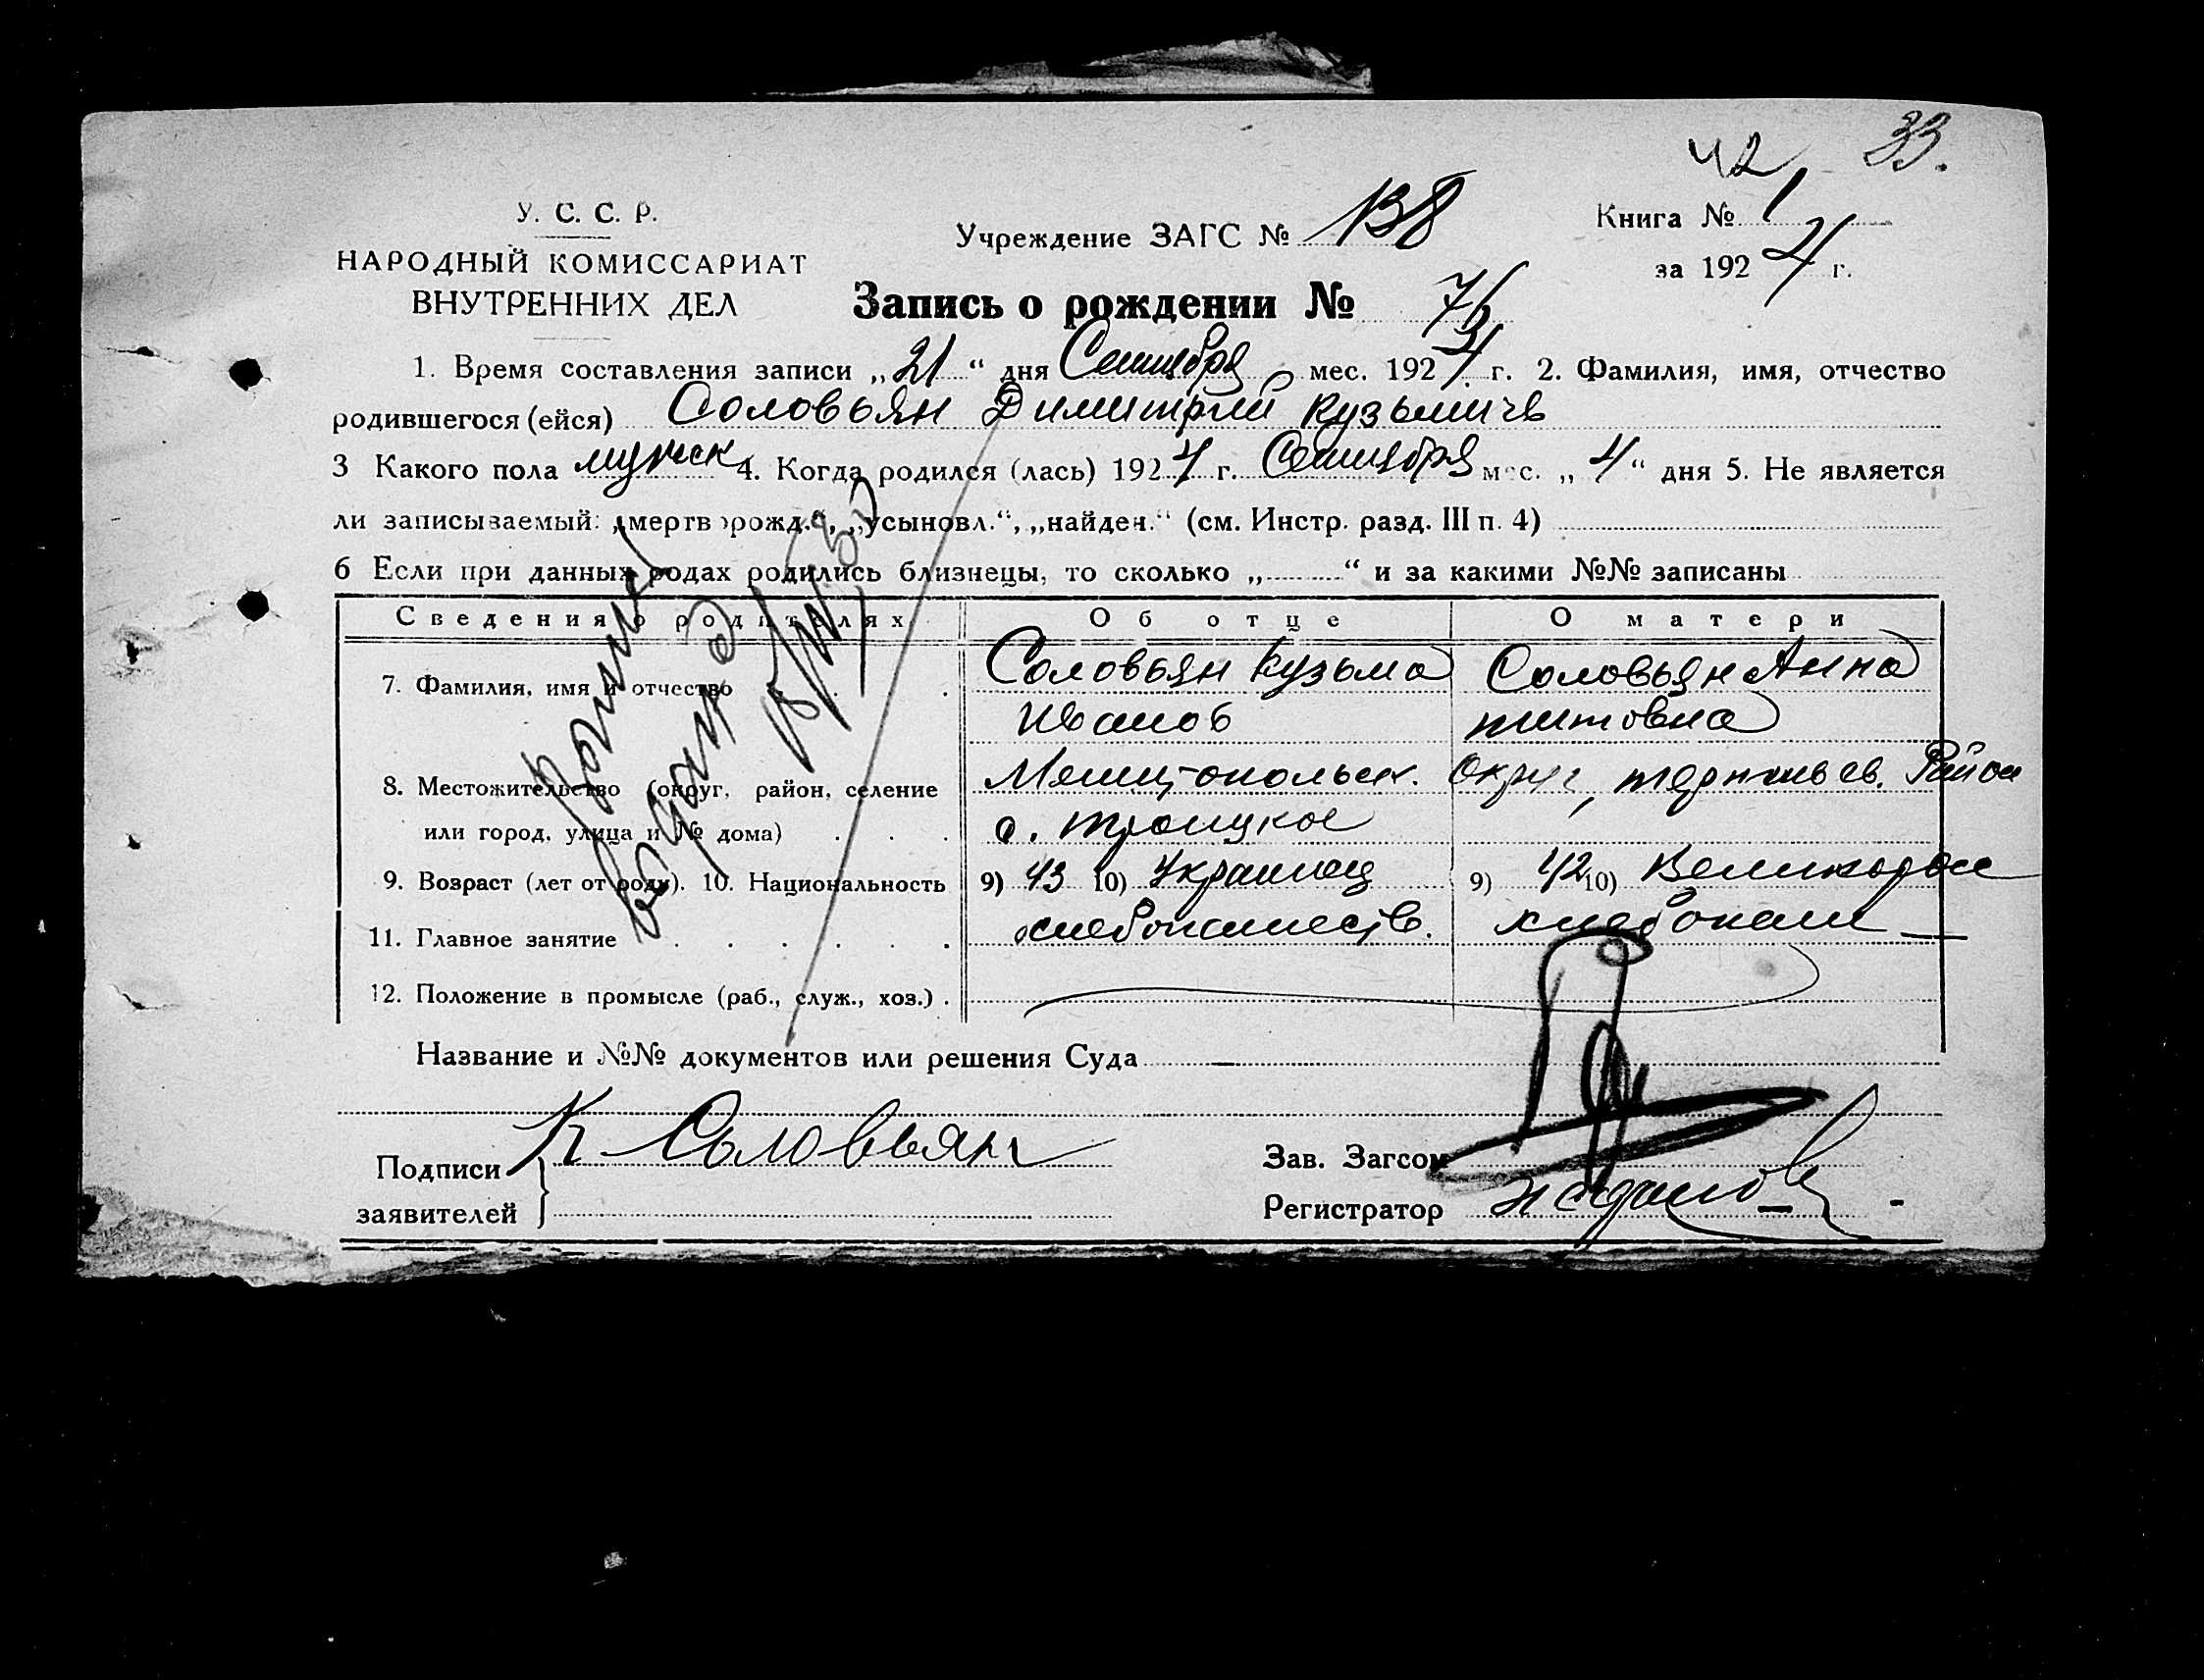 42 33.
У. С. С. Р.
НАРОДНЫЙ КОМИССАРИАТ
ВНУТРЕННИХ ДЕЛ
Учреждение ЗАГС №
Книга № 1
за 1924 г.
Запись о рождении №
1. Время составления записи „21“ дня Сентября мес. 1924 г. 2. Фамилия, имя, отчество
родившегося (ейся) Соловьян Димитрий Кузьмичь
3 Какого пола мужск 4. Когда родился (лась) 1924 г. Сентября мес. „4“ дня 5. Не является
ли записываемый: „мертворожд.“, „усыновл.“, „найден.“ (см. Инстр. разд. III п. 4)
6 Если при данных родах родились близнецы, то сколько „ “ и за какими №№ записаны
Сведения о родителях Об отце О матери
7. Фамилия, имя и отчество Соловьян Кузьма Соловьян Анна
Иванов Титовна
8. Местожительство (округ, район, селение Мелитопольск. Округ, Район
или город, улица и № дома) с. Троицкое
9. Возраст (лет от роду). 10. Национальность 9) 43 10) Украинец 9) 42 10) Великорос
11. Главное занятие хлебопашеств. хлебопаш
12. Положение в промысле (раб., служ., хоз.)
Название и №№ документов или решения Суда —
Подписи К Соловьян
заявителей
Зав. Загсом
Регистратор